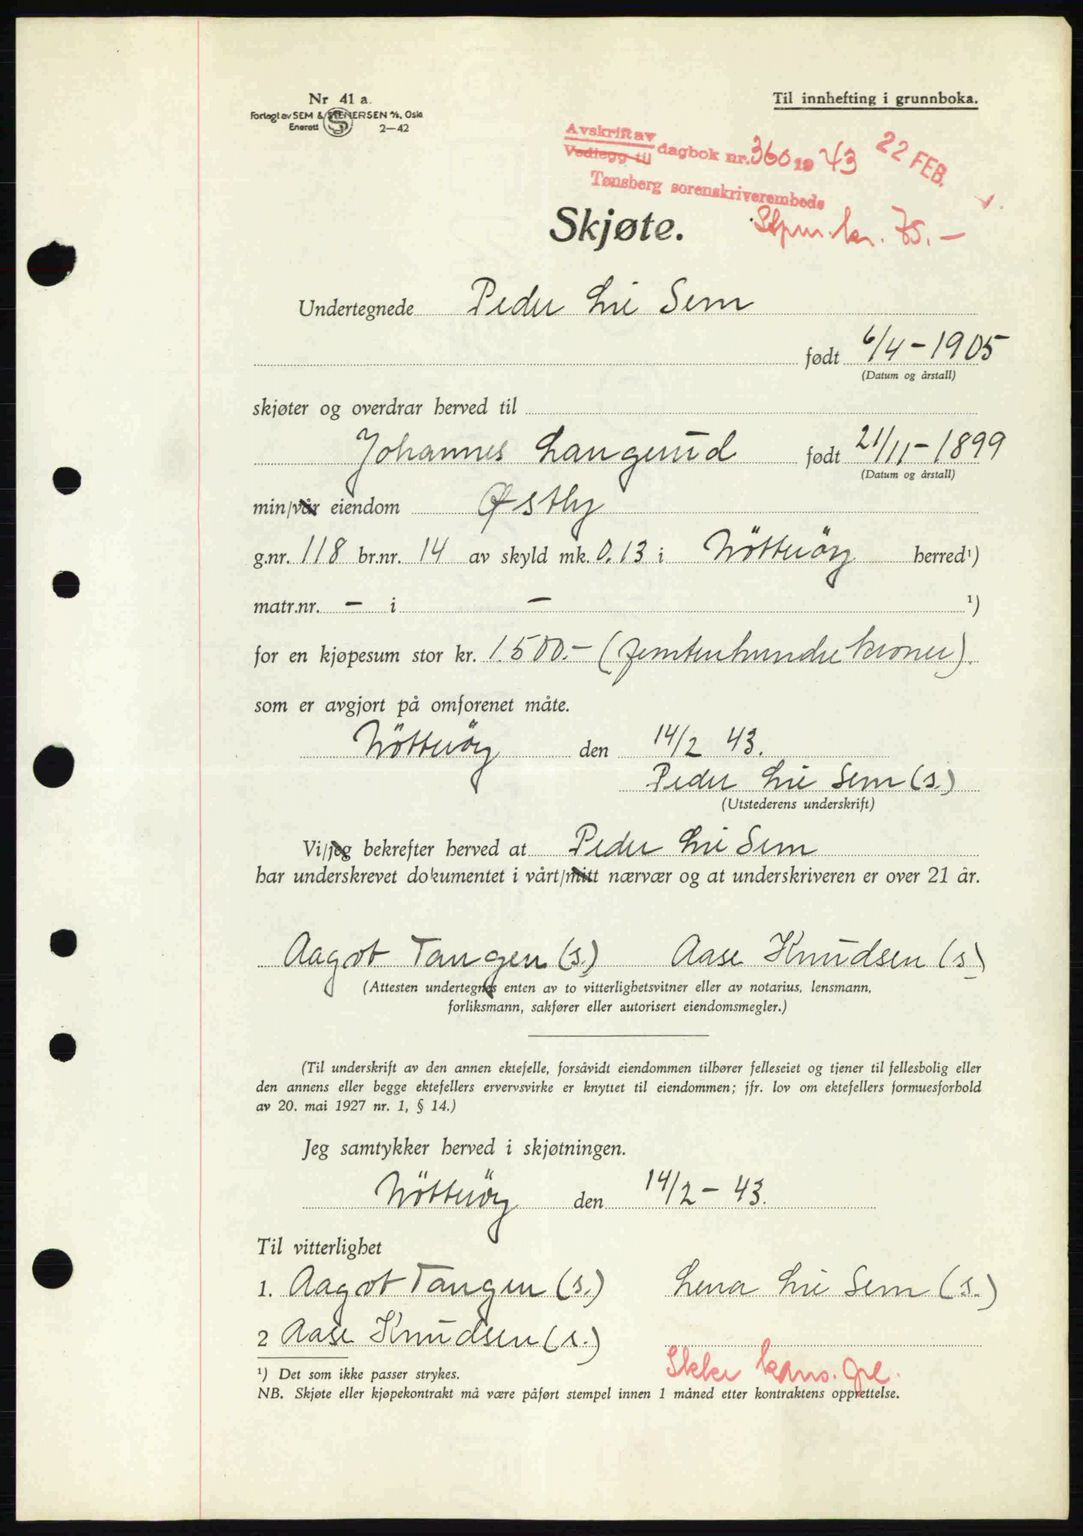 Nr 41 a.
Forlagt av SEM & STENERSEN A/S, Oslo
Enerett S 2—42
Til innhefting i grunnboka.
Avskrift av
Vedlegg til dagbok nr. 360 19 43 22 FEB.
Tønsberg sorenskriverembede
Stpm. kr. 75.—
Skjøte.
Undertegnede Peder Lie Sem
født 6/4 - 1905
(Datum og årstall)
skjøter og overdrar herved til
Johannes Langerud født 21/11 - 1899
(Datum og årstall)
min/vår eiendom Østby
g.nr. 118 br.nr. 14 av skyld mk. 0.13 i Nötteröy herred¹)
matr.nr. — i — ¹)
for en kjøpesum stor kr. 1.500.- (femtenhundre kroner).
som er avgjort på omforenet måte.
Nötteröy den 14/2 43.
Peder Lie Sem (s.)
(Utstederens underskrift)
Vi/jeg bekrefter herved at Peder Lie Sem
har underskrevet dokumentet i vårt/mitt nærvær og at underskriveren er over 21 år.
Aagot Tangen (s.) Aase Knudsen (s)
(Attesten undertegnes enten av to vitterlighetsvitner eller av notarius, lensmann,
forliksmann, sakfører eller autorisert eiendomsmegler.)
(Til underskrift av den annen ektefelle, forsåvidt eiendommen tilhører felleseiet og tjener til fellesbolig eller
den annens eller begge ektefellers ervervsvirke er knyttet til eiendommen; jfr. lov om ektefellers formuesforhold
av 20. mai 1927 nr. 1, § 14.)
Jeg samtykker herved i skjøtningen.
Nötteröy den 14/2 - 43.
Til vitterlighet
1. Aagot Tangen (s.) Lena Lie Sem (s.)
2 Aase Knudsen (s.)
Ikke kons. gel.
¹) Det som ikke passer strykes.
NB. Skjøte eller kjøpekontrakt må være påført stempel innen 1 måned etter kontraktens opprettelse.